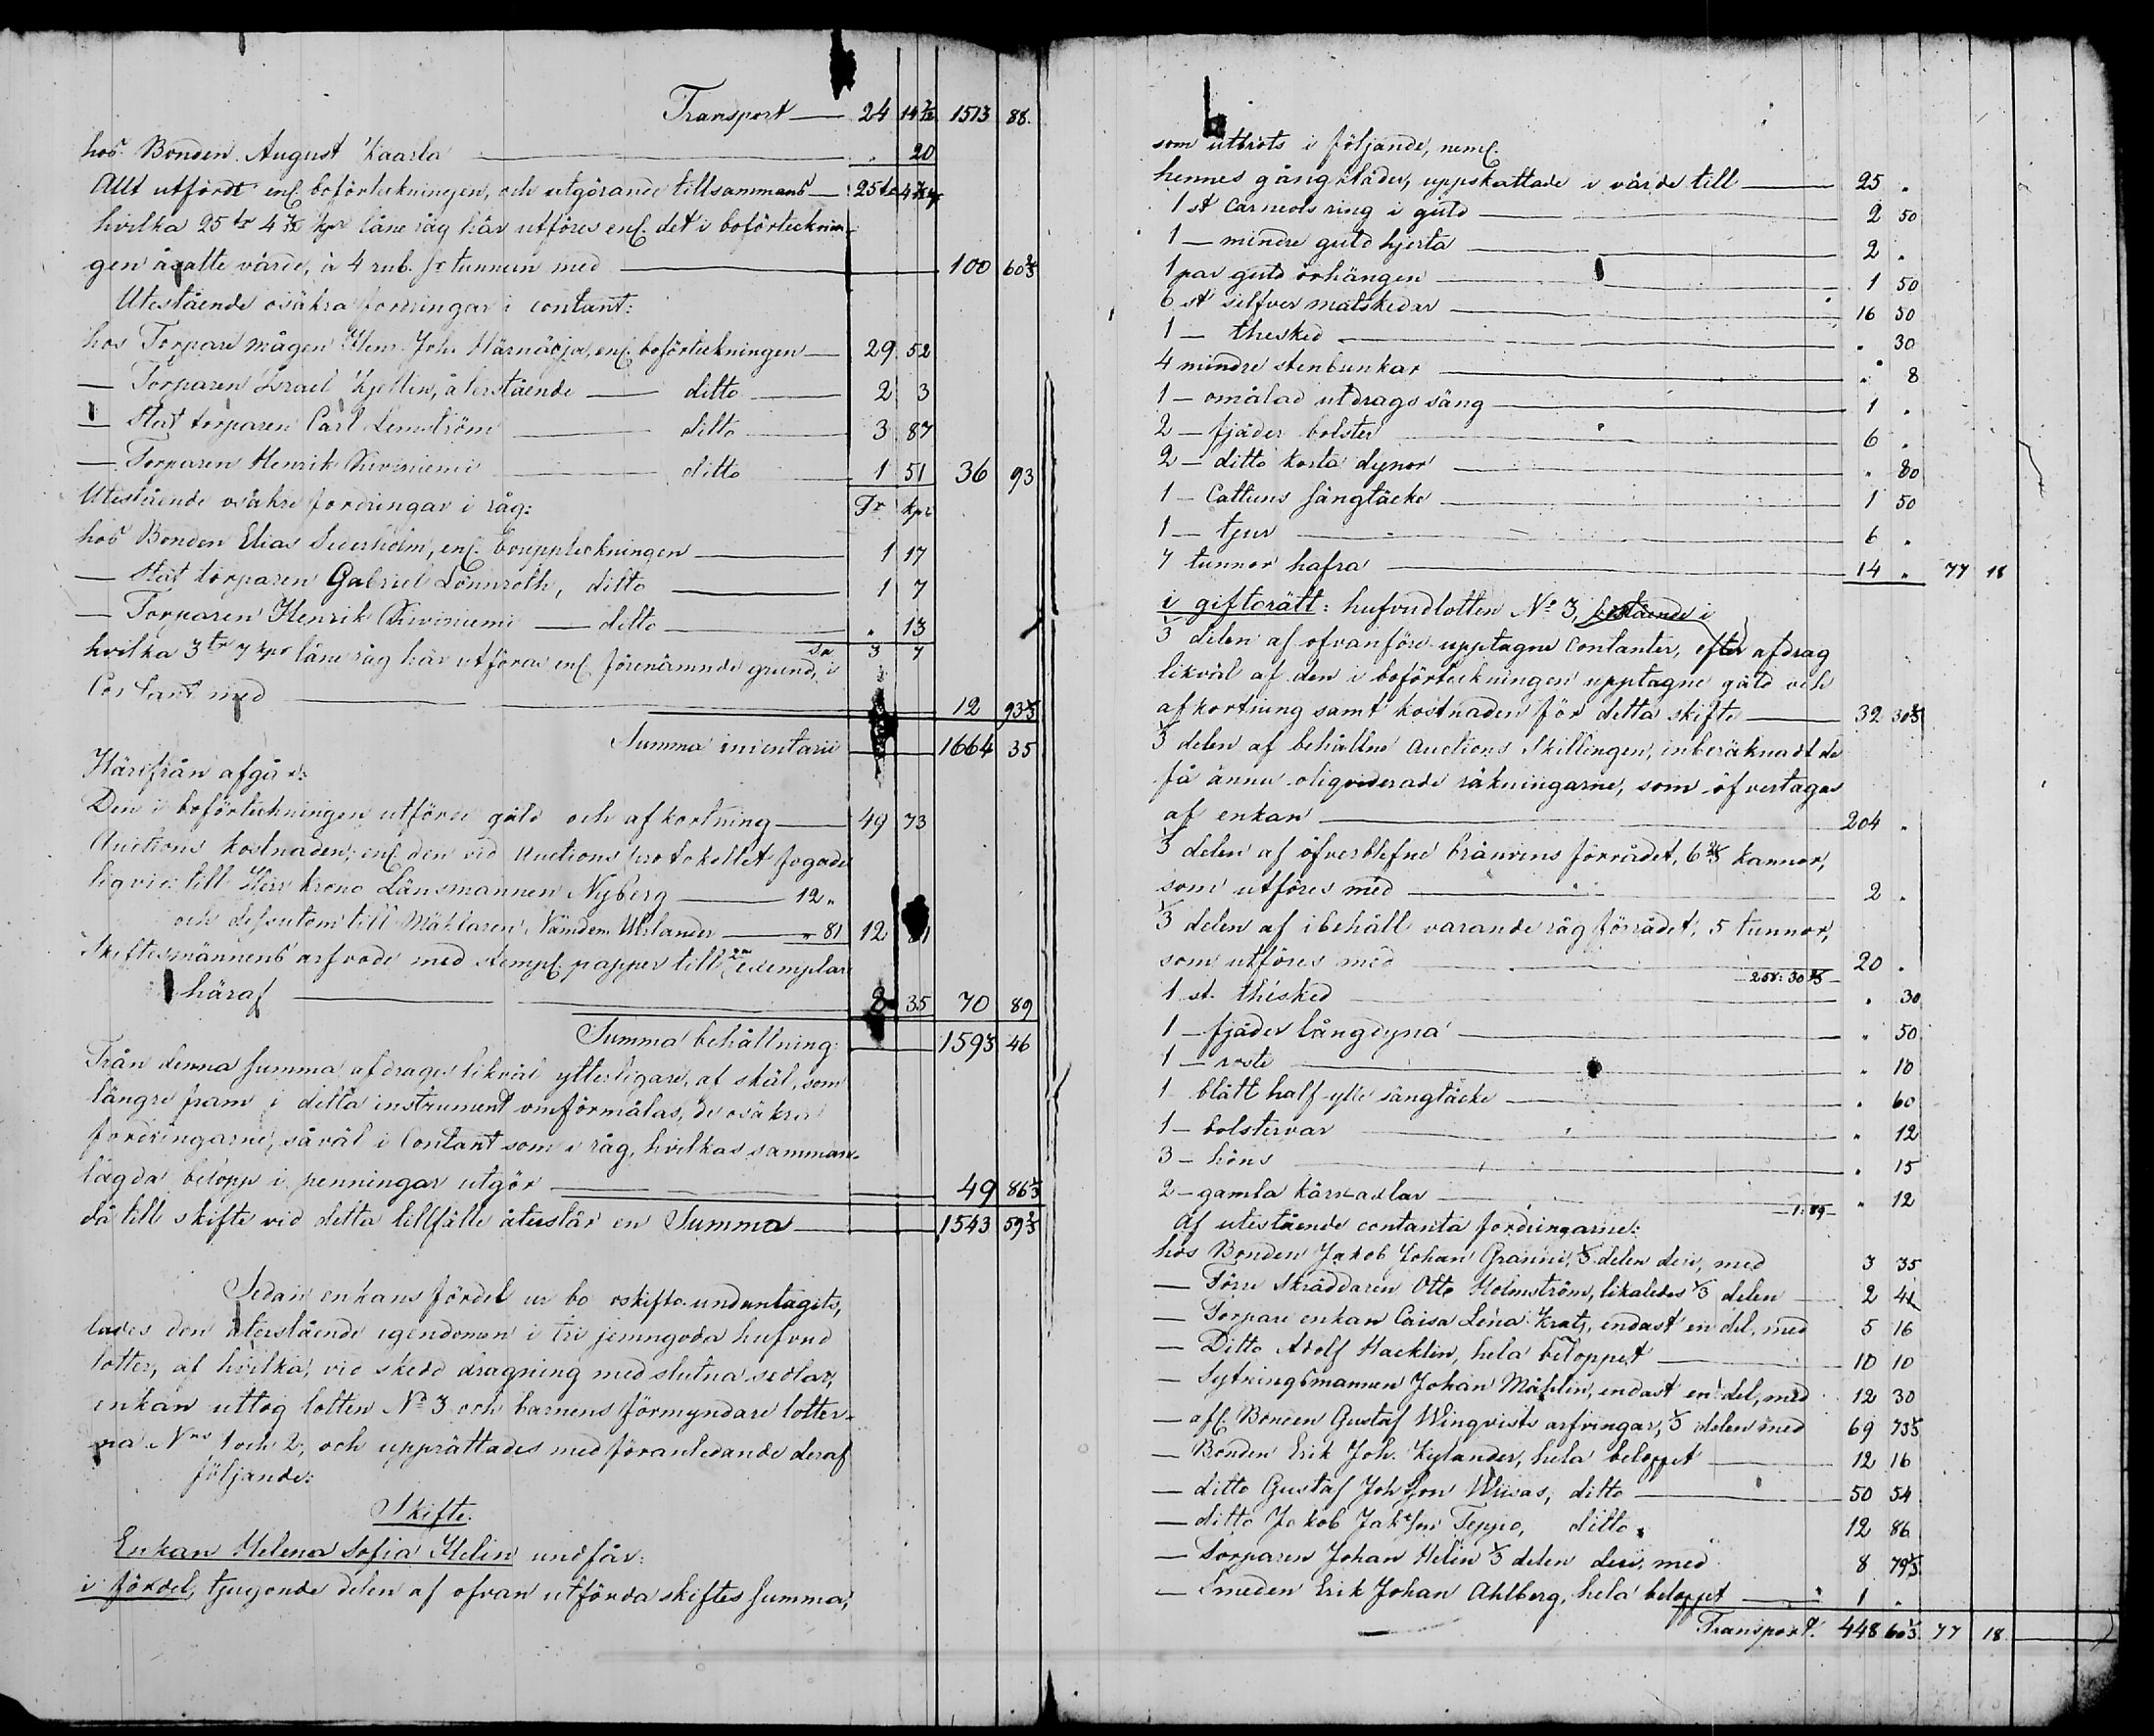 Transport — 24 14 7/12 1513 88.
hos Bonden August Kaarla — " 20
Allt utfördt enl. boförteckningen, och utgörande tillsammans — 25 tr 4 7/12 kpr
hvilka 25 tr 4 7/12 kpr låne råg här utföres enl. det i boförtecknin-
gen åsatte värde, à 4 rub. pr tunnan med — 100 60 2/3
Utestående osäkra fordringar i contant:
hos Torpare mågen Henr. Joh. Härnäoja, enl. boförteckningen — 29 52
— Torparen Israel Kjellin, återstående — ditto — 2 3
— Stat torparen Carl Lemström — ditto — 3 87
— Torparen Henrik Kiviniemi — ditto — 1 51 36 93
Utestående osäkre fordringar i råg: Tr kpr
hos Bonden Elias Sederholm, enl. bouppteckningen — 1 17
— Stat torparen Gabriel Lönnroth, ditto — 1 7
— Torparen Henrik Kiviniemi — ditto — " 13
Sa 3 7
hvilka 3 tr 7 kpr låne råg här utföras enl. förenämnde grund, i
Contant med — 12 93 1/3
Summa inventarii — 1664 35
Härifrån afgår:
Den i boförteckningen utförde gäld och afkortning — 49 73
Auctions kostnaden, enl. den vid Auctions protokollet fogade
liqvid: till Herr Krono Länsmannen Nyberg — 12 "
och dessutom till Mäklaren, Nämdem. Uhlander — " 81 12 81
Skiftesmännens arfvode med stempl. papper till 2ne exemplar
häraf — 8 35 70 89
Summa behållning: — 1593 46
Från denna summa afdrages likväl ytterligare, af skäl, som
längre fram i detta instrument omförmälas, de osäkra
fordringarne, såväl i Contant som i råg, hvilkas samman-
lagda belopp i penningar utgör — 49 86 1/3
då till skifte vid detta tillfälle återstår en Summa — 1543 59 2/3
Sedan enkans fördel ur bo oskifto undantagits,
lades den återstående egendomen i tri jemngoda hufvud
lotter, af hvilka, vid skedd dragning med slutna sedlar,
enkan uttog lotten No 3 och barnens förmyndare lotter-
na Nris 1 och 2, och upprättades med föranledande deraf
följande:
Skifte.
Enkan Helena Sofia Helin undfår:
i fördel, tjugonde delen af ofvan utförda skiftes summa,
som utbröts i följande, neml.
hennes gångkläder, uppskattade i värde till — 25 "
1 st Carneols ring i guld — 2 50
1 — mindre guld hjerta — 2 "
1 par guld örhängen — 1 50
6 st silfver matskedar — 16 50
1 — thesked — " 30
4 mindre stenbunkar — " 8
1 — omålad utdrags säng — 1 "
2 — fjäder bolster — 6 "
2 — ditto korta dynor — " 80
1 — Cattuns sängtäcke — 1 50
1 — tjur — 6 "
7 tunnor hafra — 14 " 77 18
i giftorätt: hufvudlotten No 3, bestående i
1/3 delen af ofvanföre upptagne Contanter, efter afdrag
likväl af den i boförteckningen upptagne gäld och
afkortning samt kostnaden för detta skifte — 32 30 2/3
1/3 delen af behållne Auctions Skillingen, inberäknadt de
få ännu oliqviderade räkningarne, som öfvertages
af enkan — 204 "
1/3 delen af öfverblefne bränvins förrådet, 6 2/3 kannor,
som utföres med — 2 "
1/3 delen af i behåll varande råg förrådet, 5 tunnor,
som utföres med — 20 "
258: 30 2/3
1 st. thesked — " 30
1 — fjäder långdyna — " 50
1 — — " 10
1 blått half ylle sängtäcke — " 60
1 — bolstervar — " 12
3 — höns — " 15
2 — gamla kärr axlar — " 12
1: 89
Af utestående contanta fordringarne:
hos Bonden Jakob Johan Granni, 1/3 delen deri, med 3 35
— Förre Skräddaren Otto Holmström, likaledes 1/3 delen — 2 41
— Torpare enkan Caisa Lena Kratz, endast en del, med 5 16
— Ditto Adolf Hacklin, hela beloppet — 10 10
— Sytningsmannen Johan Mählin, endast en del, med 12 30
— afl. Bonden Gustaf Winqvists arfvingar, 1/3 delen med 69 73 1/3
— Bonden Erik Joh. Kylander, hela beloppet — 12 16
— ditto Gustaf Johsson Wiisas, ditto — 50 54
— ditto Jakob Jakssn Teppo, ditto 12 86
— Torparen Johan Helin 1/3 delen deri, med 8 79 1/3
— Smeden Erik Johan Ahlberg, hela beloppet — 1 "
Transport. 448 60 1/3 77 18